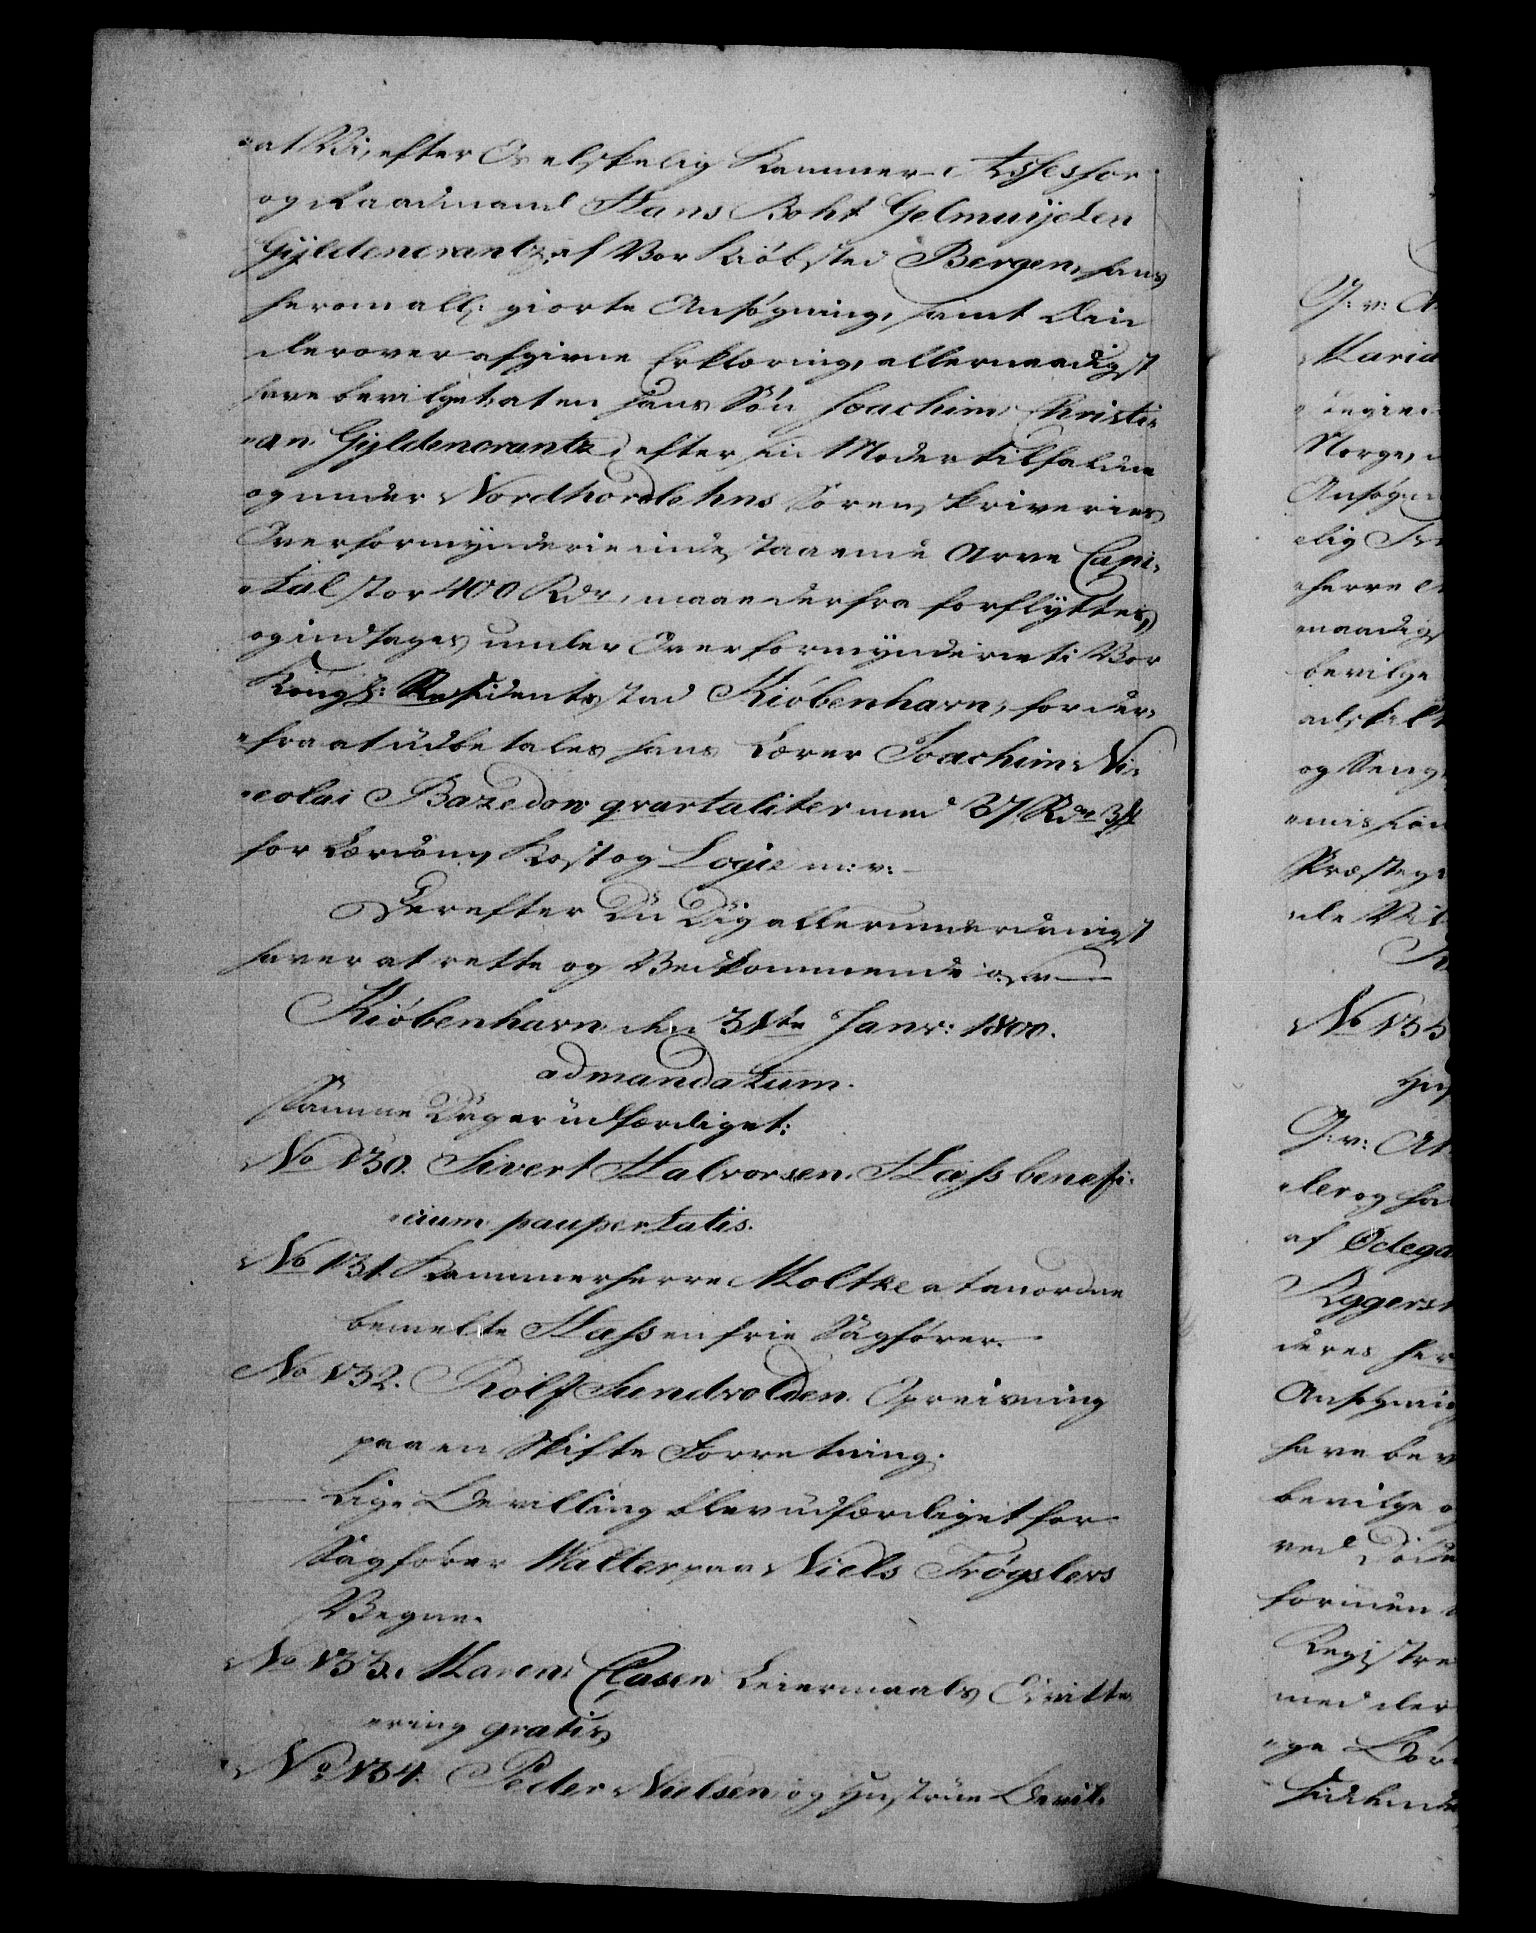 at Vi, efter Os elskelig Kammer-Assessor
og Raadmand Hans Boht Gelmuijden
Gyldencrantz, af Vor Kiöbsted Bergen, hans
herom all: giorte Ansøgning, samt Din
derover afgivne Erklæring, allernaadigst
have bevilget, at en hans Søn Joachim Christi-
-an Gyldencrantz efter sin Moder tilfalden
og under Nordhordlehns Sorenskriveries
Overformynderie indestaaende Arve Capi-
-tal stor 400 Rdr, maae derfra forflyttes,
og indtages under Overformynderiet i Vor
Kongl: Residentsstad Kiöbenhavn, for der-
-fra at udbetales hans Lærer Joachim Ni-
-colai Bazedow qvartaliter med 37 Rdr 3 #
for Lærdom, Kost og Logie m: v:
Derefter Du Dig allerunderdanigst
haver at rette og Vedkommende o. s. v.
Kiöbenhavn den 31te Janr: 1800.
ad mandatum.
Samme Dag er udfærdiget:
No 130. Sivert Halvorsen Hæss benefi-
-cium paupertatis.
No 131. Kammerherre Moltke at anordne
bemelte Hæss en frie Sagfører.
No 132. Rolf Sundvolden Opreisning
paa en Skifte Forretning.
Lige Bevilling blev udfærdiget for
Sagfører Walter paa Niels Trøgslers
Vegne.
No 133. Maren Clasen Leiermaals Qvitte-
-ring gratis
No 134. Peder Nielsen og Hustrue Bevil-
G: v: A
Maria
Norge,
Ansøgn
-elig
herre
-naadigs
bevilge
adskil
og Seng
-mission
Præsteg
No 135
G: v: At
-der og
af Ødega
Rygers
deres her
Ansøgning
have bev
bevilge
ved Døde
formeen
Registre
med der
-ge